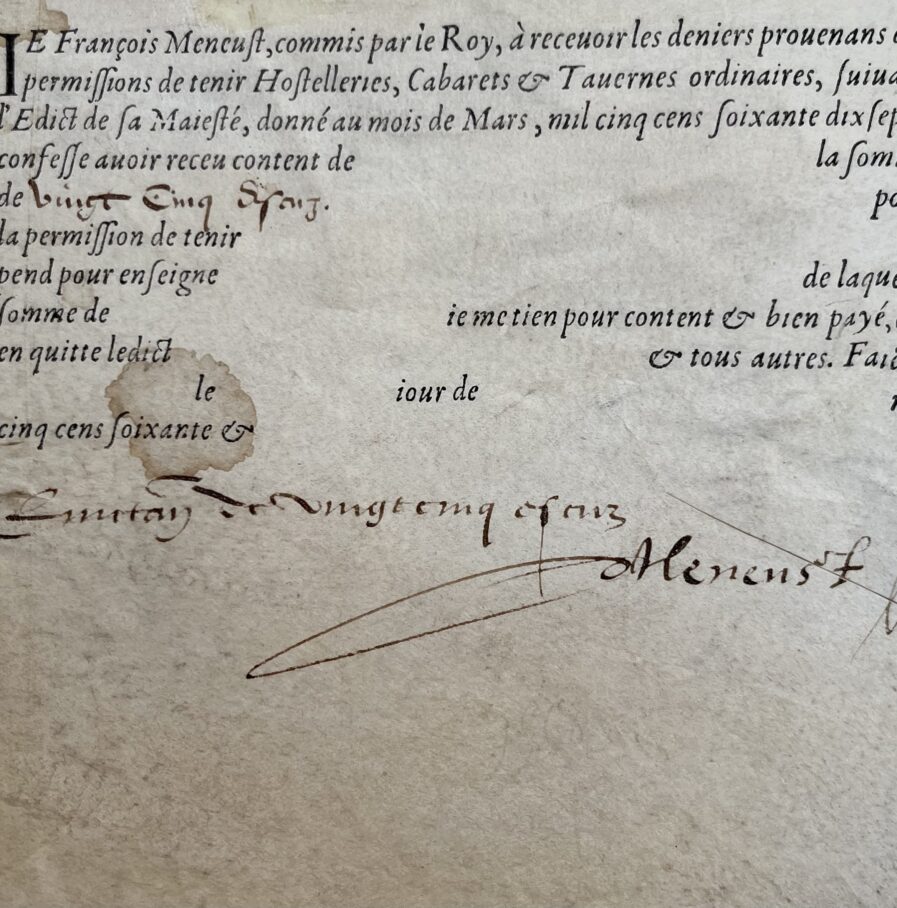 IE François Meneust, commis par le Roy, à receuoir les deniers prouenans
permiſſions de tenir Hoſtelleries, Cabarets & Tauernes ordinaires, ſuiua
l'Edict de ſa Maieſté, donné au mois de Mars, mil cinq cens ſoixante dix ſep
confeſſe auoir receu content de la ſom
de vingt cinq eſcuz. po
la permiſſion de tenir
pend pour enſeigne de laque
ſomme de ie me tien pour content & bien payé,
en quitte ledict & tous autres. Faic
le iour de
cinq cens ſoixante &
de vingt cinq eſcuz
Meneuſt